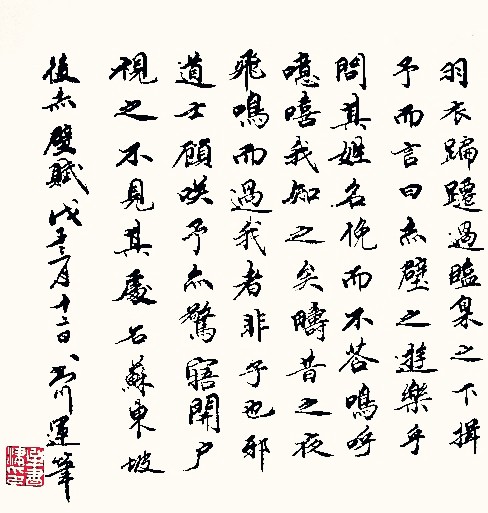 羽衣蹁躚過臨皋之下揖
予而言曰赤壁之遊樂乎
問其姓名俛而不荅嗚呼
噫嘻我知之矣疇昔之夜
飛鳴而過我者非子也邪
道士顧咲予亦驚寤開户
視之不見其處右蘇東坡
後赤壁賦戊子三月十二日川運筆